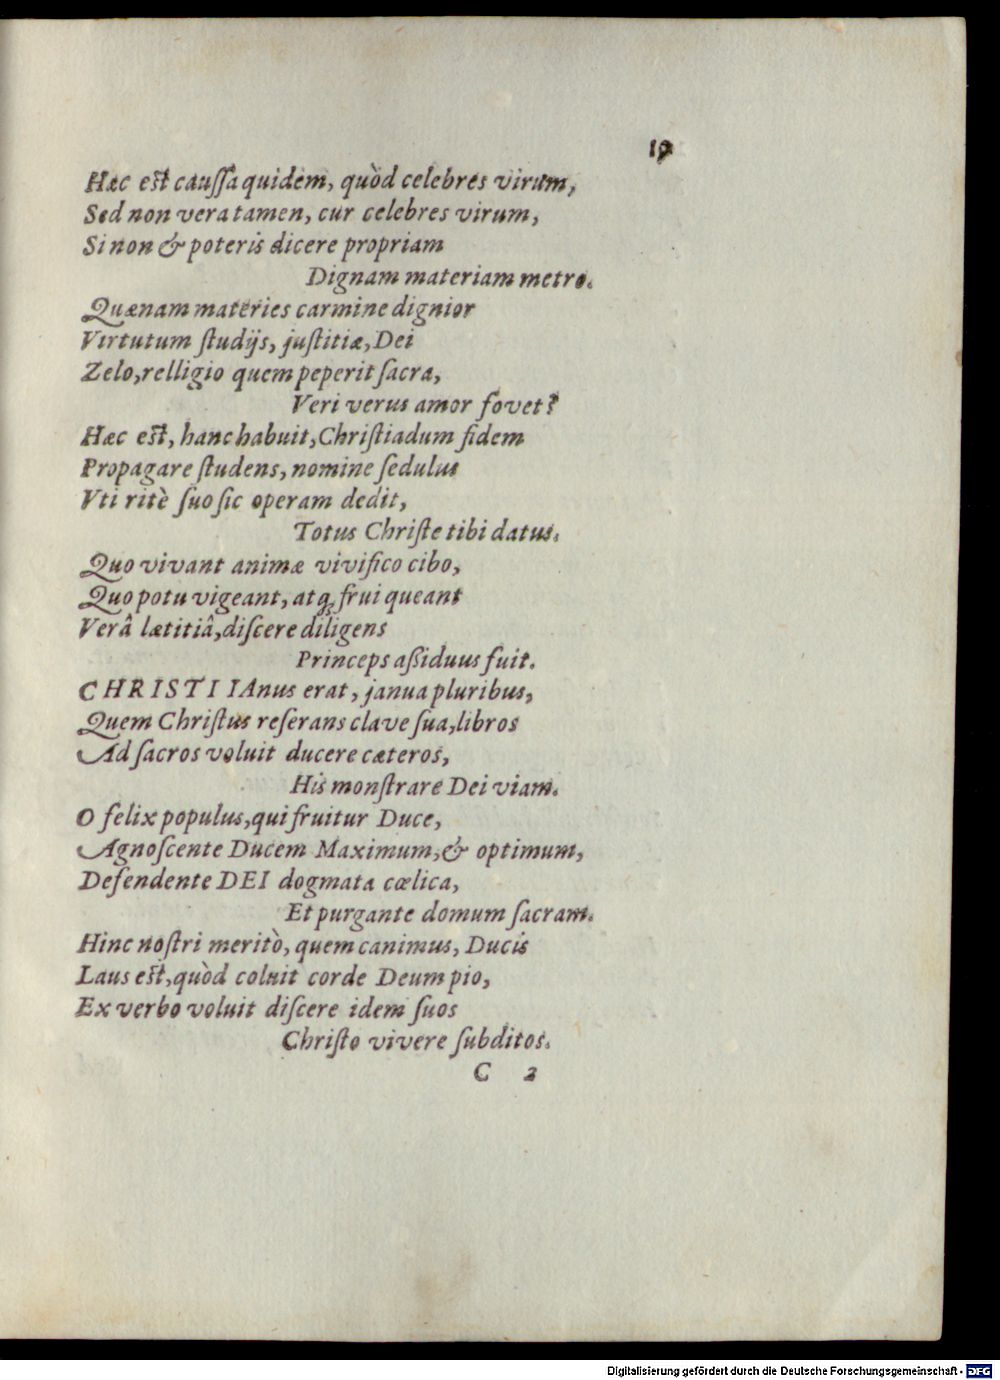 19
Hæc est caussa quidem, quòd celebres virum,
Sed non vera tamen, cur celebres virum,
Si non & poteris dicere propriam
Dignam materiam metro.
Quænam materies carmine dignior
Virtutum studijs, justitiæ, Dei
Zelo, relligio quem peperit sacra,
Veri verus amor fovet?
Hæc est, hanc habuit, Christiadum fidem
Propagare studens, nomine sedulus
Vti ritè suo sic operam dedit,
Totus Christe tibi datus.
Quo vivant animæ vivifico cibo,
Quo potu vigeant, atq; frui queant
Verâ lætitiâ, discere diligens
Princeps assiduus fuit.
CHRISTIIAnus erat, janua pluribus,
Quem Christus reserans clave sua, libros
Ad sacros voluit ducere cæteros,
His monstrare Dei viam.
O felix populus, qui fruitur Duce,
Agnoscente Ducem Maximum, & optimum,
Defendente DEI dogmata cœlica,
Et purgante domum sacram.
Hinc nostri meritò, quem canimus, Ducis
Laus est, quòd coluit corde Deum pio,
Ex verbo voluit discere idem suos
Christo vivere subditos.
C 2
Digitalisierung gefördert durch die Deutsche Forschungsgemeinschaft - DFG